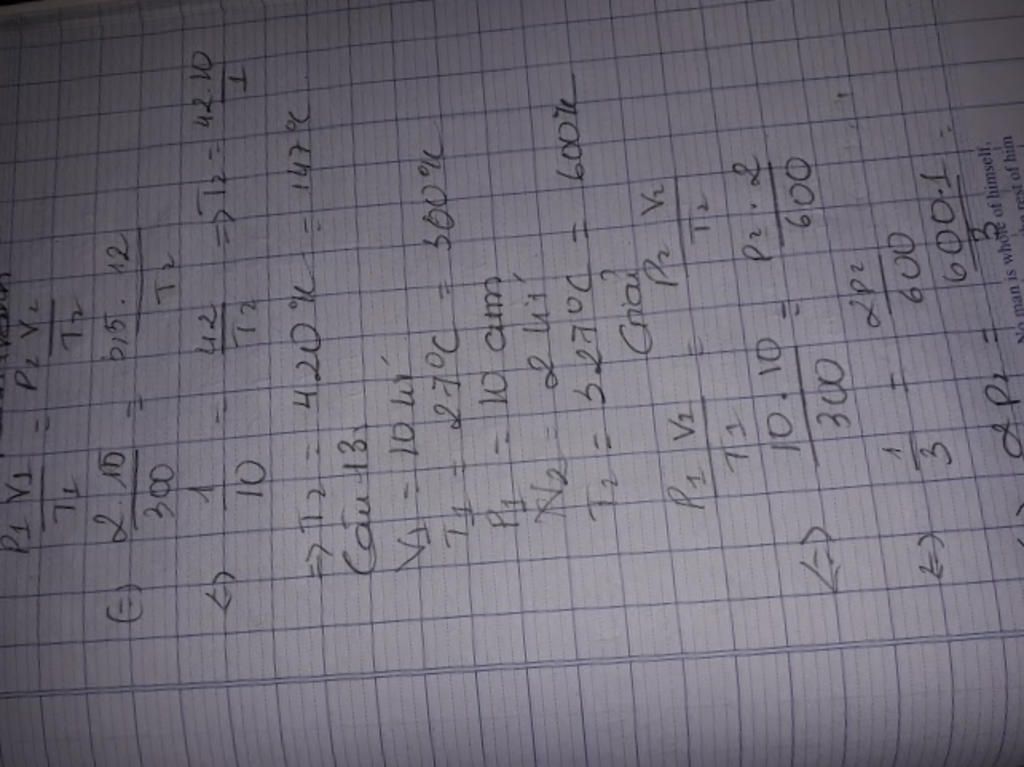 P₁ V₁ / T₁ = P₂ V₂ / T₂
(=) 2.10 / 300 = 3,5.12 / T₂
<=> 1 / 10 = 42 / T₂ => T₂ = 42.10 / 1
=> T₂ = 420°K = 147°C
Câu 13
V₁ = 10 lít
T₁ = 27°C = 300°K
P₁ = 10 atm
V₂ = 2 lít
T₂ = 327°C = 600°K
Giải
P₁ V₂ / T₁ = P₂ V₂ / T₂
<=> 10.10 / 300 = P₂.2 / 600
<=> 1 / 3 = 2P₂ / 600
2P₂ = 600.1 / 3 =
No man is whole of himself,